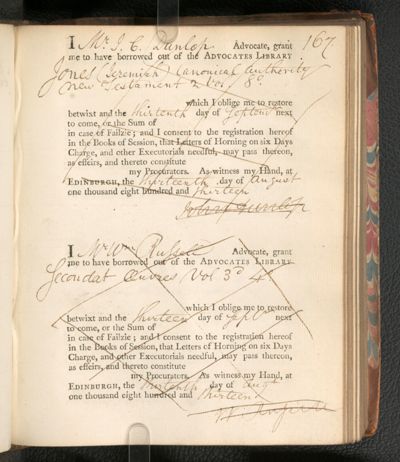 167
I Mr J. C. Dunlop Advocate, grant
me to have borrowed out of the ADVOCATES LIBRARY
Jones (Jeremiah) Canonical Authority
New Testament 2 Vol 8o
which I oblige me to restore
betwixt and the thirteenth day of Septem next
to come, or the Sum of
in case of Failzie; and I consent to the registration hereof
in the Books of Session, that Letters of Horning on six Days
Charge, and other Executorials needful, may pass thereon,
as effeirs, and thereto constitute
my Procurators. As witness my Hand, at
EDINBURGH, the thirteenth day of August
one thousand eight hundred and thirteen
John Dunlop
I Mr Wm Russell Advocate, grant
me to have borrowed out of the ADVOCATES LIBRARY
Secondat Œuvres Vol 3d 4o
which I oblige me to restore
betwixt and the thirteen day of Sept next
to come, or the Sum of
in case of Failzie; and I consent to the registration hereof
in the Books of Session, that Letters of Horning on six Days
Charge, and other Executorials needful, may pass thereon,
as effeirs, and thereto constitute
my Procurators. As witness my Hand, at
EDINBURGH, the thirteenth day of Augt
one thousand eight hundred and thirteen